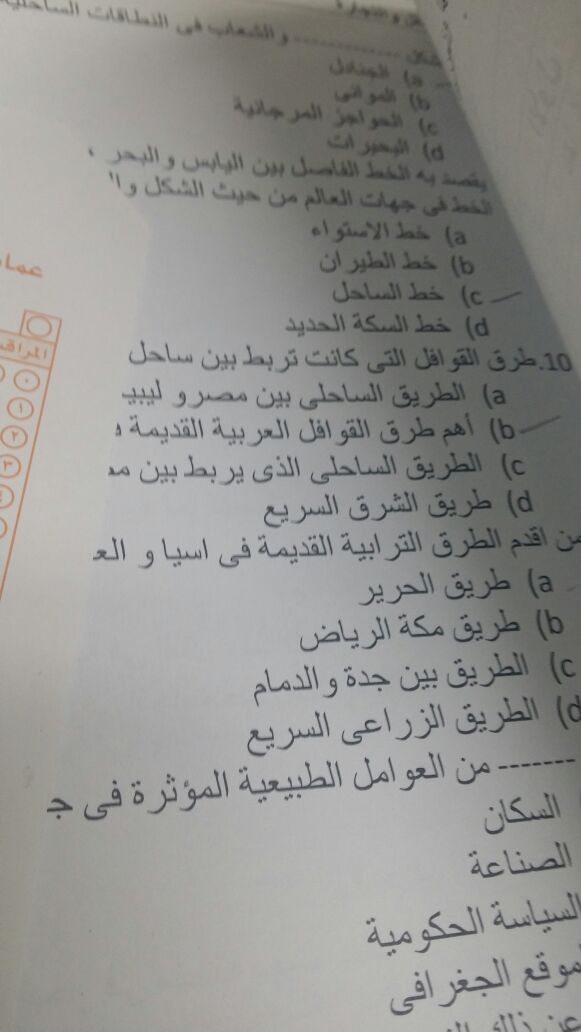 والشعاب فى النطاقات الساحلية
a) الجنادل
b) الموانى
c) الحواجز المرجانية
d) البحيرات
يقصد به الخط الفاصل بين اليابس والبحر ،
الخط فى جهات العالم من حيث الشكل وال
a) خط الاستواء
b) خط الطيران
c) خط الساحل
d) خط السكة الحديد
10.طرق القوافل التى كانت تربط بين ساحل
a) الطريق الساحلى بين مصر و ليبي
b) أهم طرق القوافل العربية القديمة
c) الطريق الساحلى الذى يربط بين مص
d) طريق الشرق السريع
من اقدم الطرق الترابية القديمة فى اسيا و الع
a) طريق الحرير
b) طريق مكة الرياض
c) الطريق بين جدة والدمام
d) الطريق الزراعى السريع
------- من العوامل الطبيعية المؤثرة فى ج
السكان
الصناعة
السياسة الحكومية
موقع الجغرافى
عما
المراق
٠
١
٢
٣